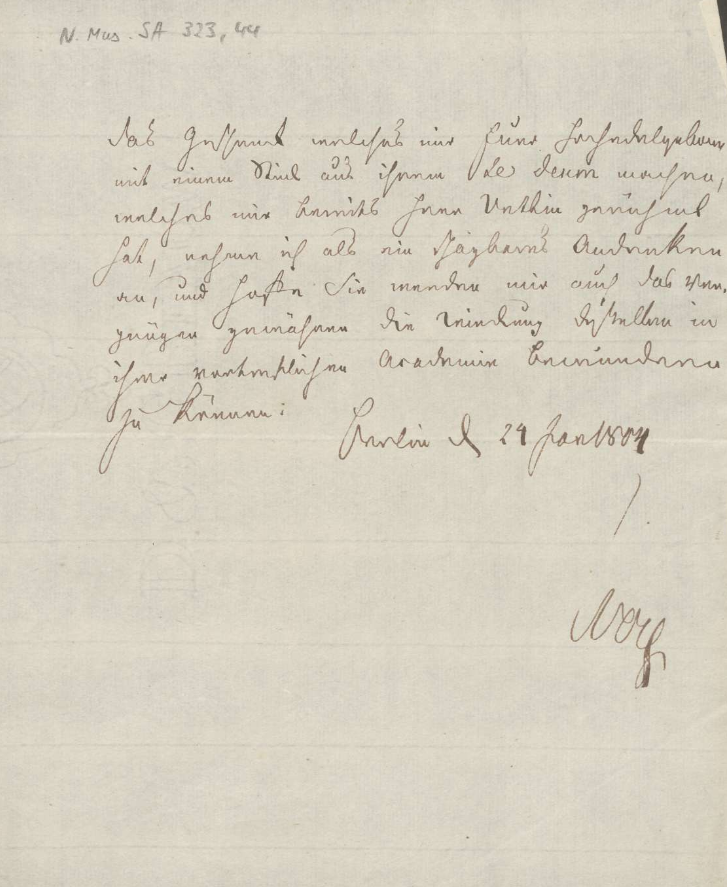 N. Mus. SA 323, 44
das Geschenk welches mir Euer Hochedelgeboren
mit einem Stück aus ihrem Te Deum machen,
welches mir bereits Herr gerühmt
hat, nehme ich als ein schäzbares Andenken
an, und hoffe Sie werden mir auch das Ver¬
gnügen gewähren die Wirkung deßelben in
ihrer vortreflichen Academie bewundern
zu können:
Berlin d 24 Jan 1804